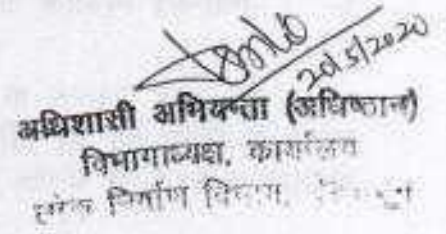 20/5/2020
अधिशासी अभियन्ता (अधिष्ठान)
विभागाध्यक्ष, कार्यालय
लोक निर्माण विभाग,